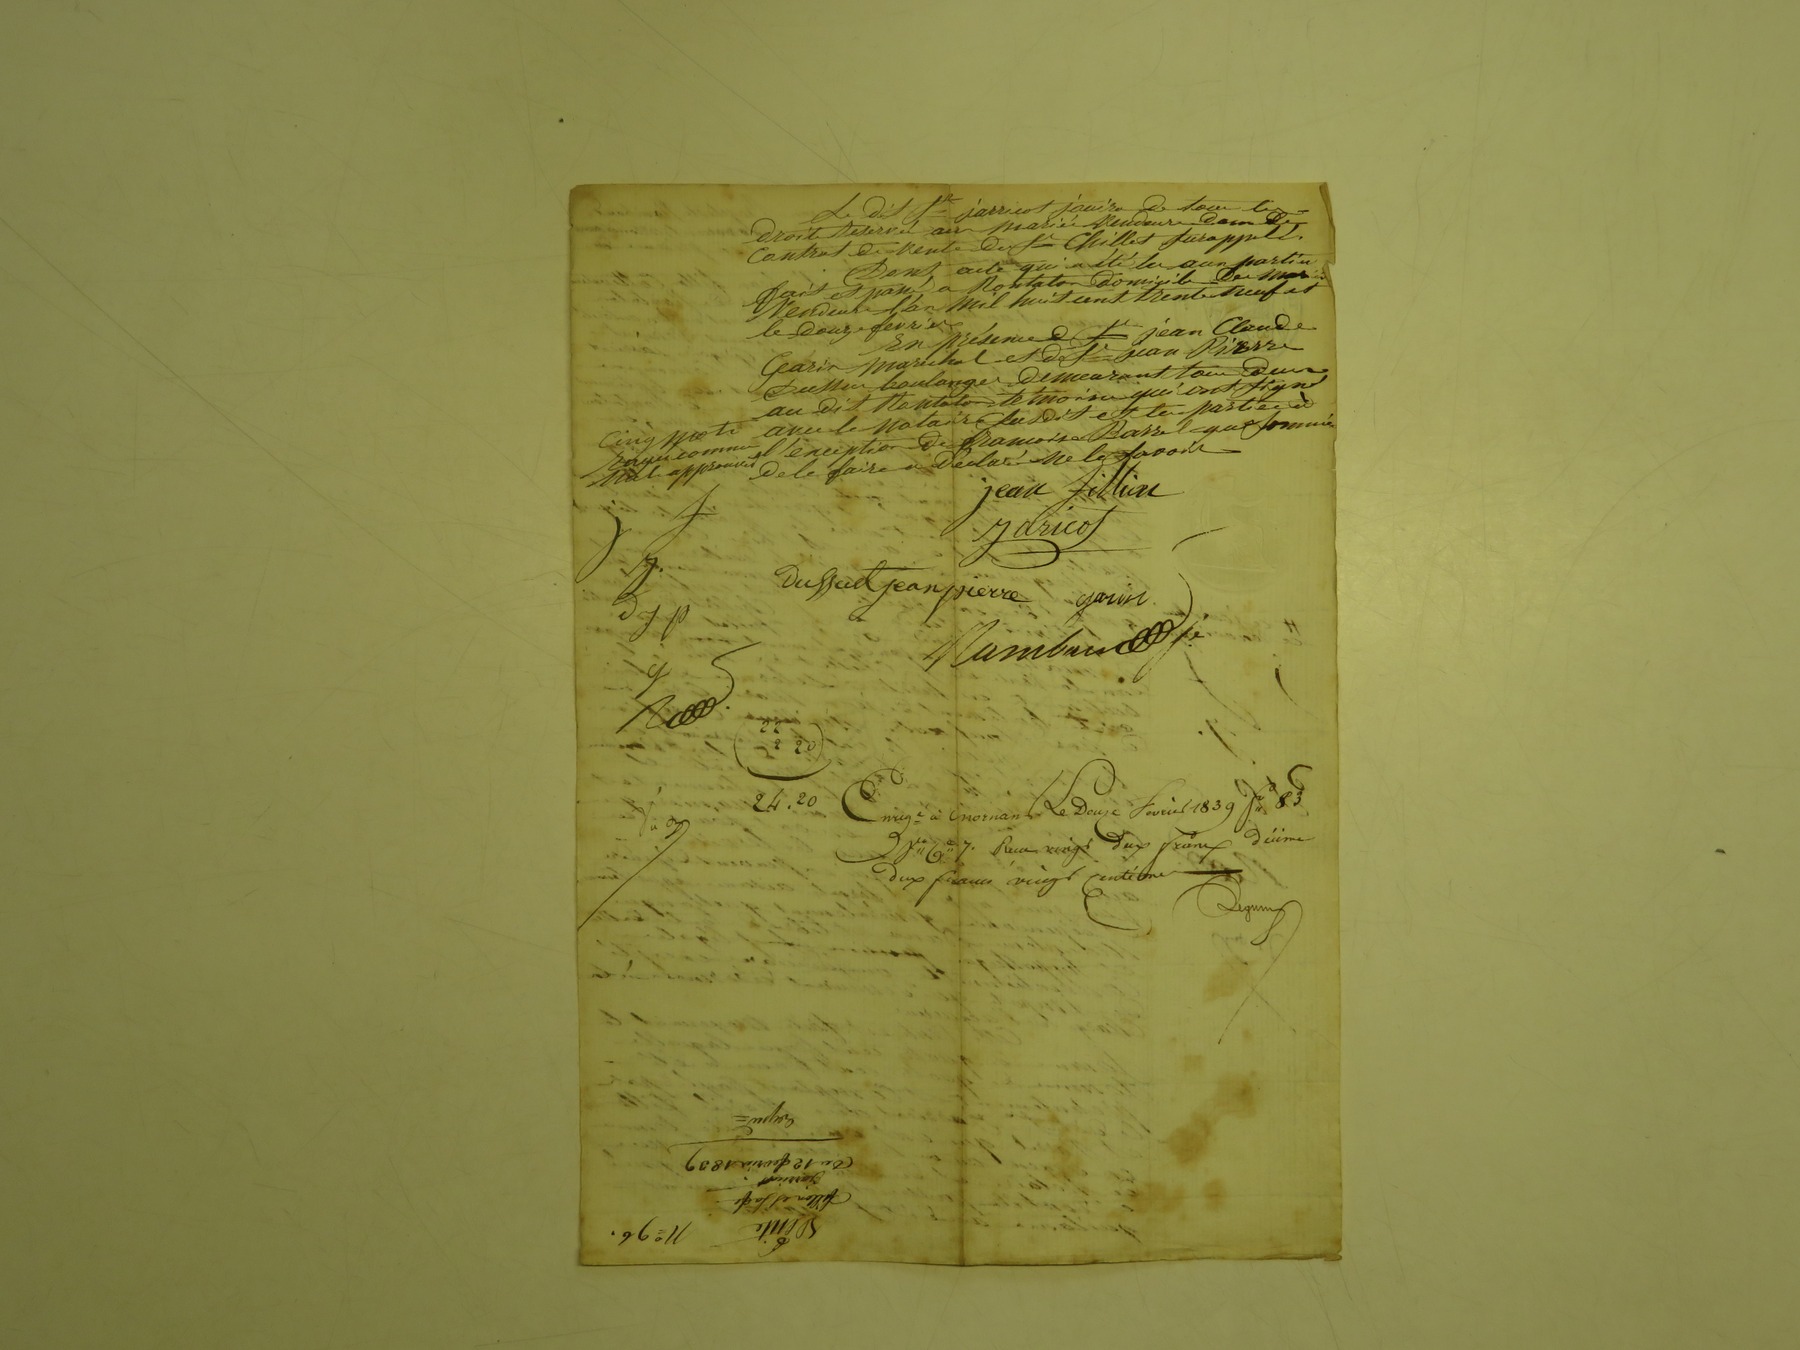 Le dit Sr jarricot jouira de tous les
droits reservés aux mariés Vendeurs dans le
Contrat de vente du Sr Chillet surappellé.
Dont acte qui a été lu aux parties
fait et passé a domicile des mariés
Vendeurs l'an mil huit cent trente neuf et
le douze fevrier
En présence de Sr jean Claude
Garin marechal et de Sr jean Pierre
boulanger demeurant tous deux
au dit témoins qui ont signé
avec le notaire susdit et les parties à
l'exception de francoise Barrel qui sommée
de le faire a déclaré ne le savoir
Cinq mots
rayés comme
nuls approuvés
jean fillion
Jaricot
j
J.
djp
dussuel jean pierre garin
g
22
2 20
24.20
Enrgé à Mornant Le Douze Fevrier 1839 fo 83
Vo Ce 7. Reçu vingt deux francs décime
deux francs vingt centimes
No 96.
Vente
fillion et
Jarricot
Du 12 fevrier 1839
Expé